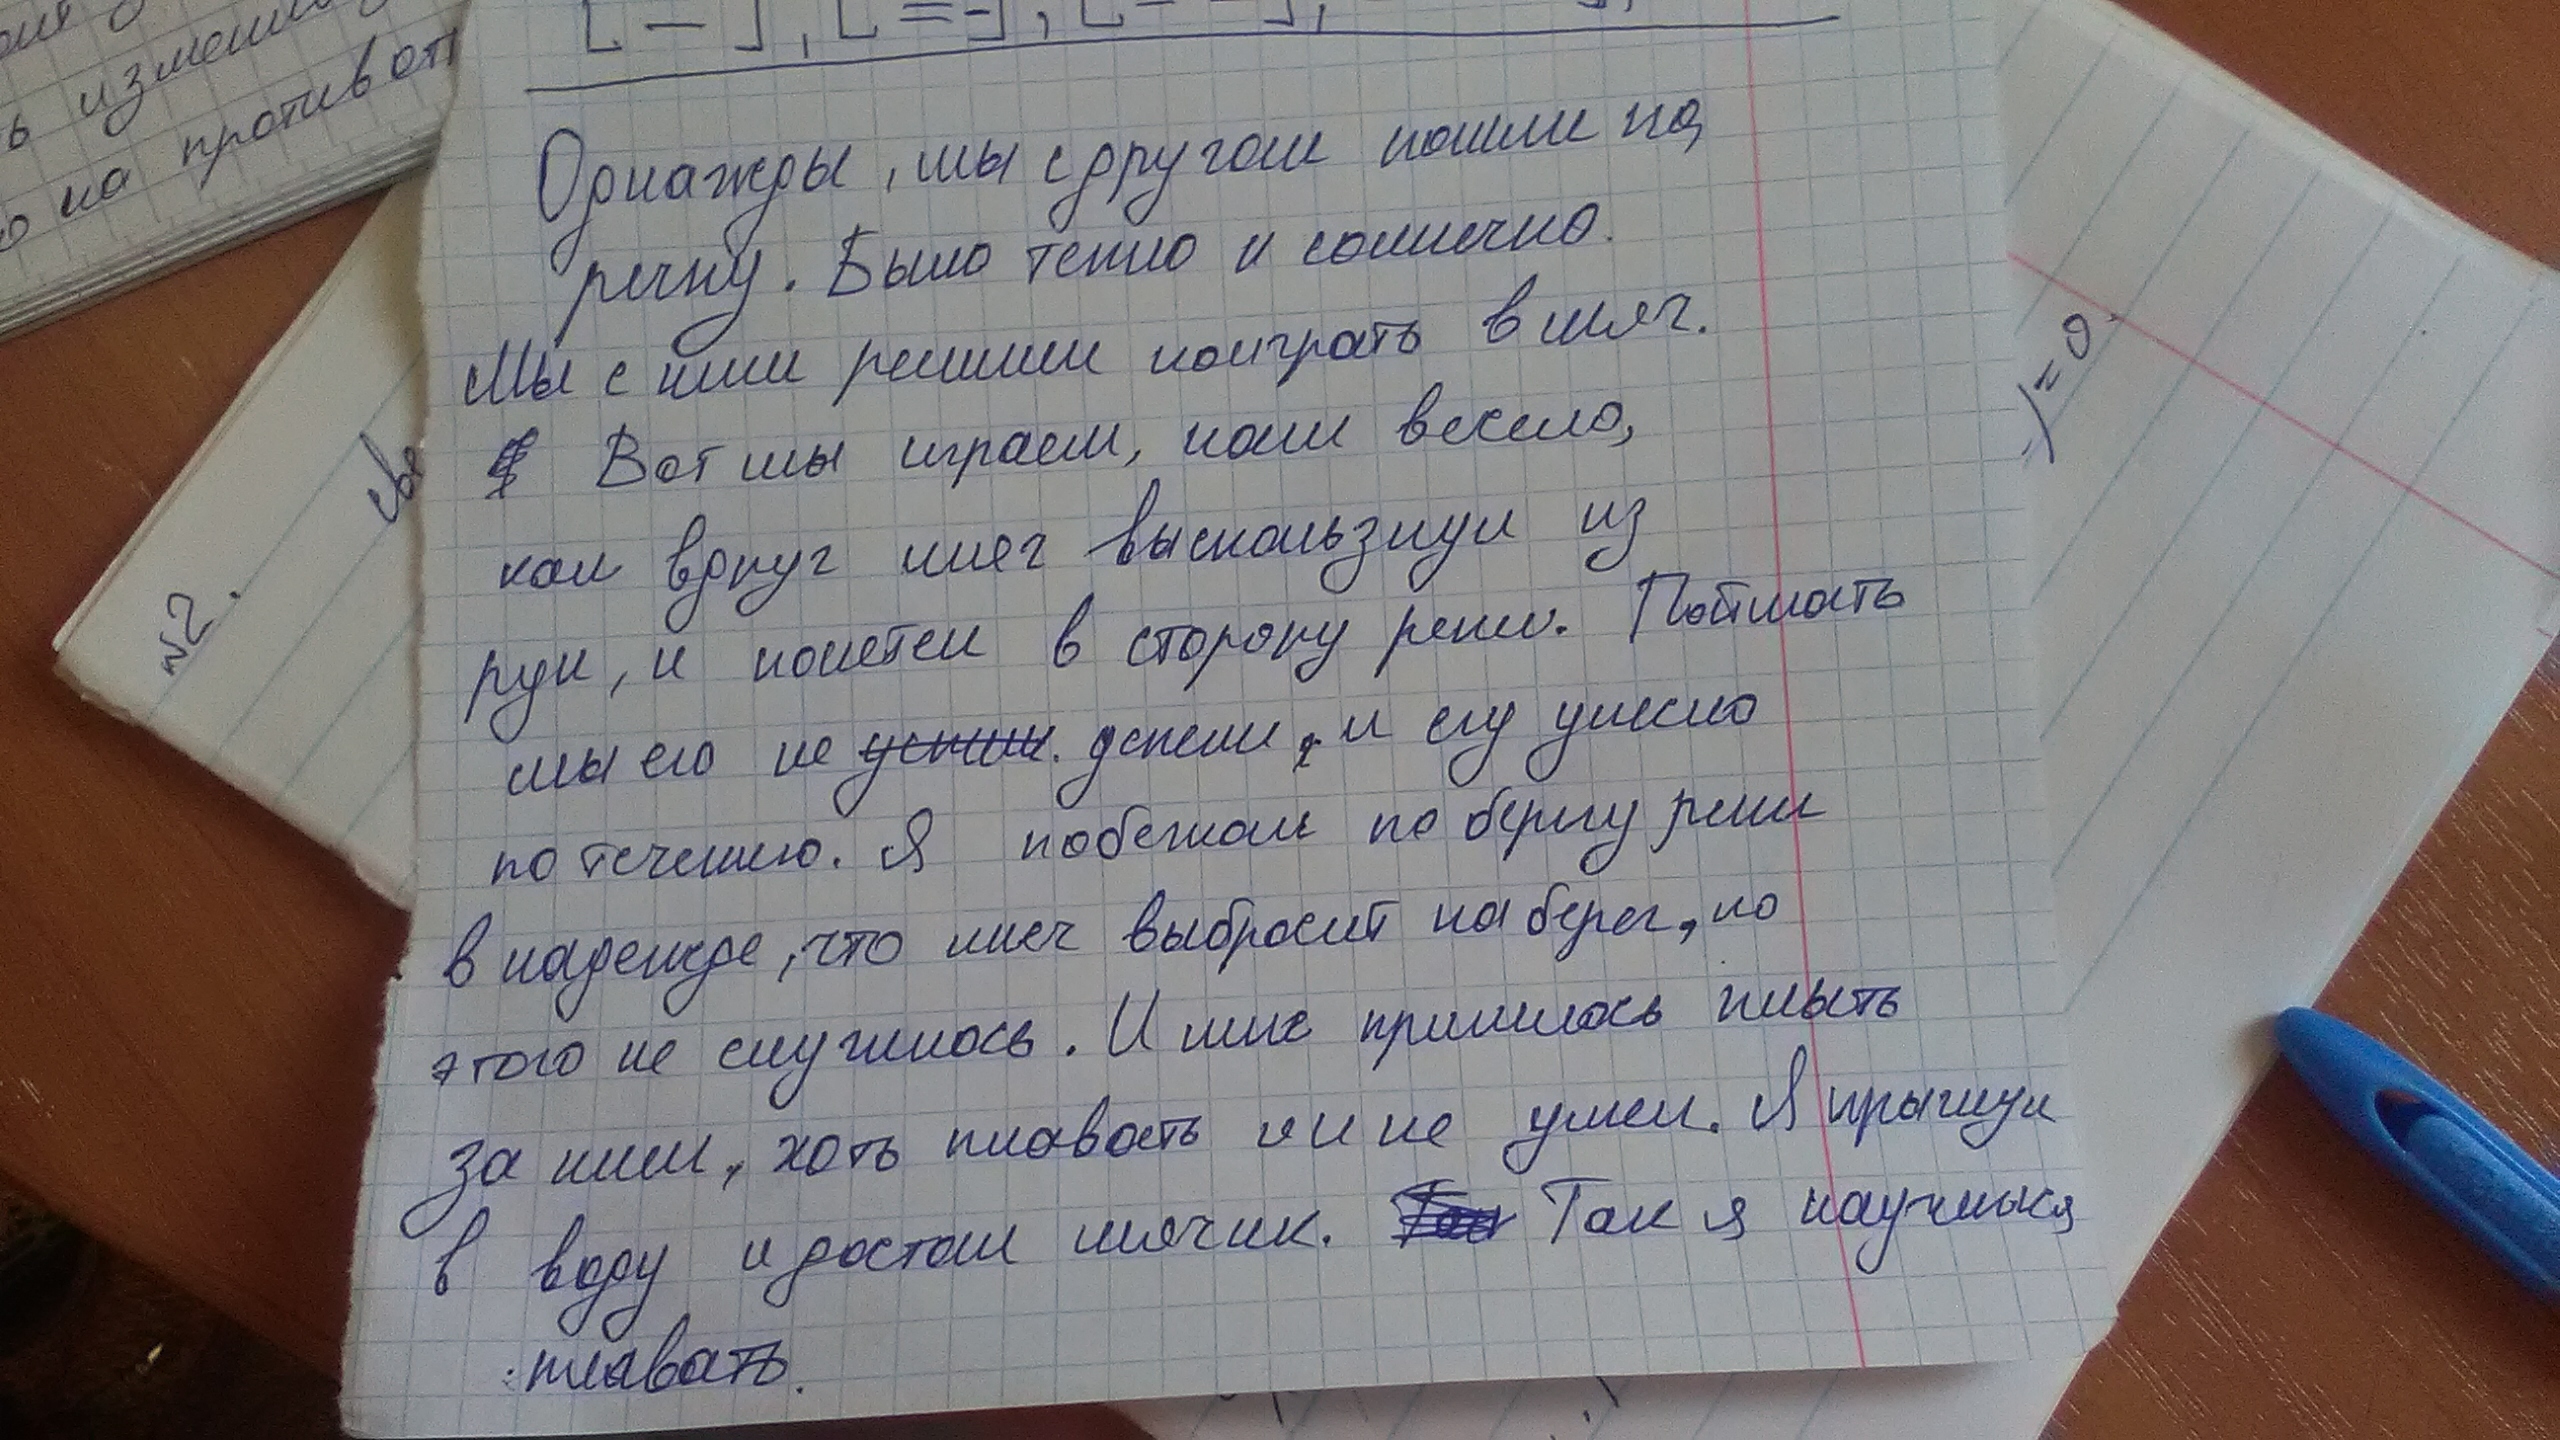 ь измени
о на противоп
[ — ], [ = - ], [ - - ],
Однажды, мы с другом пошли на
речку. Было тепло и солнечно.
Мы с ним решили поиграть в мяч.
Вот мы играем, нам весело,
как вдруг мяч выскользнул из
рук, и полетел в сторону реки. Поймать
мы его не успели. успели, и его унесло
по течению. Я побежал по берегу реки
в надежде, что мяч выбросит на берег, но
этого не случилось. И мне пришлось плыть
за ним, хоть плавать я и не умел. Я прыгнул
в воду и достал мячик. Так я научился
плавать.
№2.
)=0.